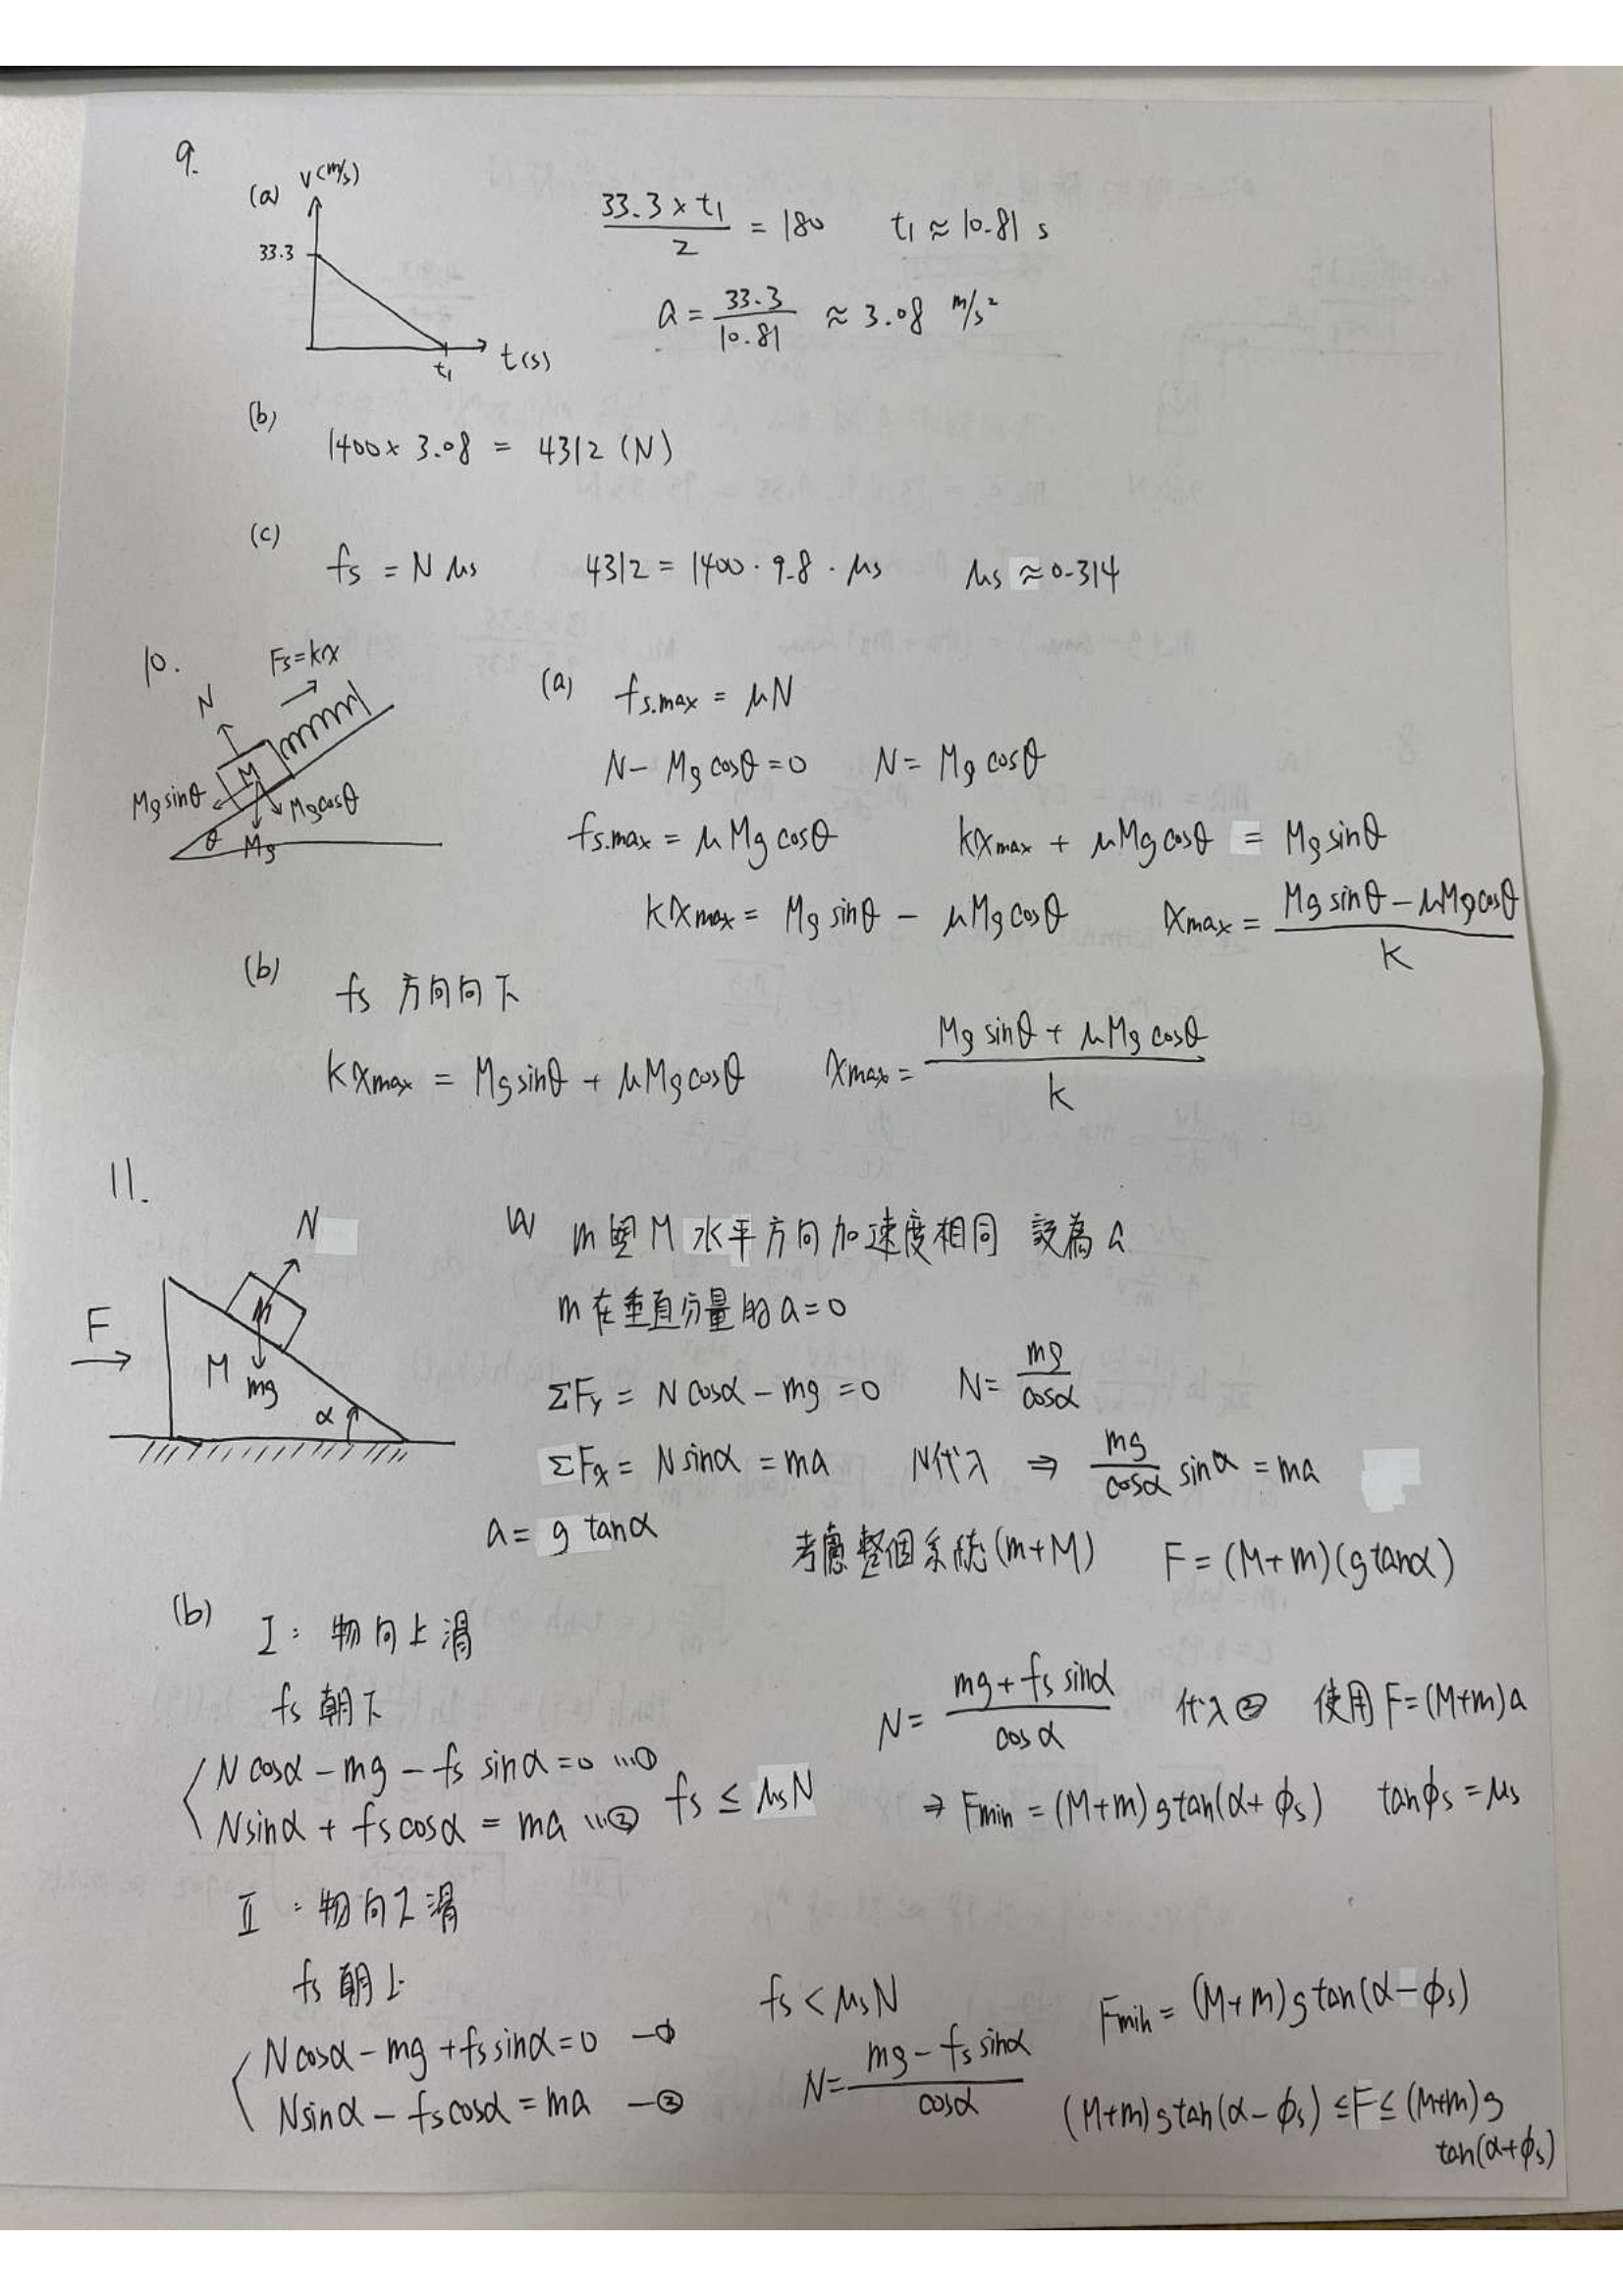 9.
(a) v(m/s)
33.3
t₁ t(s)
33.3 × t₁ / 2 = 180 t₁ ≈ 10.81 s
a = 33.3 / 10.81 ≈ 3.08 m/s²
(b)
1400 × 3.08 = 4312 (N)
(c)
fs = N μs 4312 = 1400 · 9.8 · μs μs ≈ 0.314
10.
Fs = kx
N
M
Mg sinθ
Mg cosθ
θ Mg
(a) fs.max = μN
N − Mg cosθ = 0 N = Mg cosθ
fs.max = μ Mg cosθ kxmax + μMg cosθ = Mg sinθ
kxmax = Mg sinθ − μMg cosθ xmax = Mg sinθ − μMg cosθ / k
(b)
fs 方向向下
kxmax = Mg sinθ + μMg cosθ xmax = Mg sinθ + μMg cosθ / k
11.
N
F
m
M mg
α
(a) m與M水平方向加速度相同 設為a
m在垂直分量的a=0
ΣFy = N cosα − mg = 0 N = mg / cosα
ΣFx = N sinα = ma N代入 ⇒ mg / cosα sinα = ma
a = g tanα 考慮整個系統(m+M) F = (M+m)(g tanα)
(b)
I: 物向上滑
fs 朝下
N cosα − mg − fs sinα = 0 ...①
N sinα + fs cosα = ma ...②
fs ≤ μsN
N = mg + fs sinα / cosα 代入② 使用F=(M+m)a
⇒ Fmin = (M+m) g tan(α + ϕs) tanϕs = μs
II: 物向下滑
fs 朝上
N cosα − mg + fs sinα = 0 —①
N sinα − fs cosα = ma —②
fs < μsN
N = mg − fs sinα / cosα
Fmin = (M+m) g tan(α − ϕs)
(M+m) g tan(α − ϕs) ≤ F ≤ (M+m) g
tan(α+ϕs)